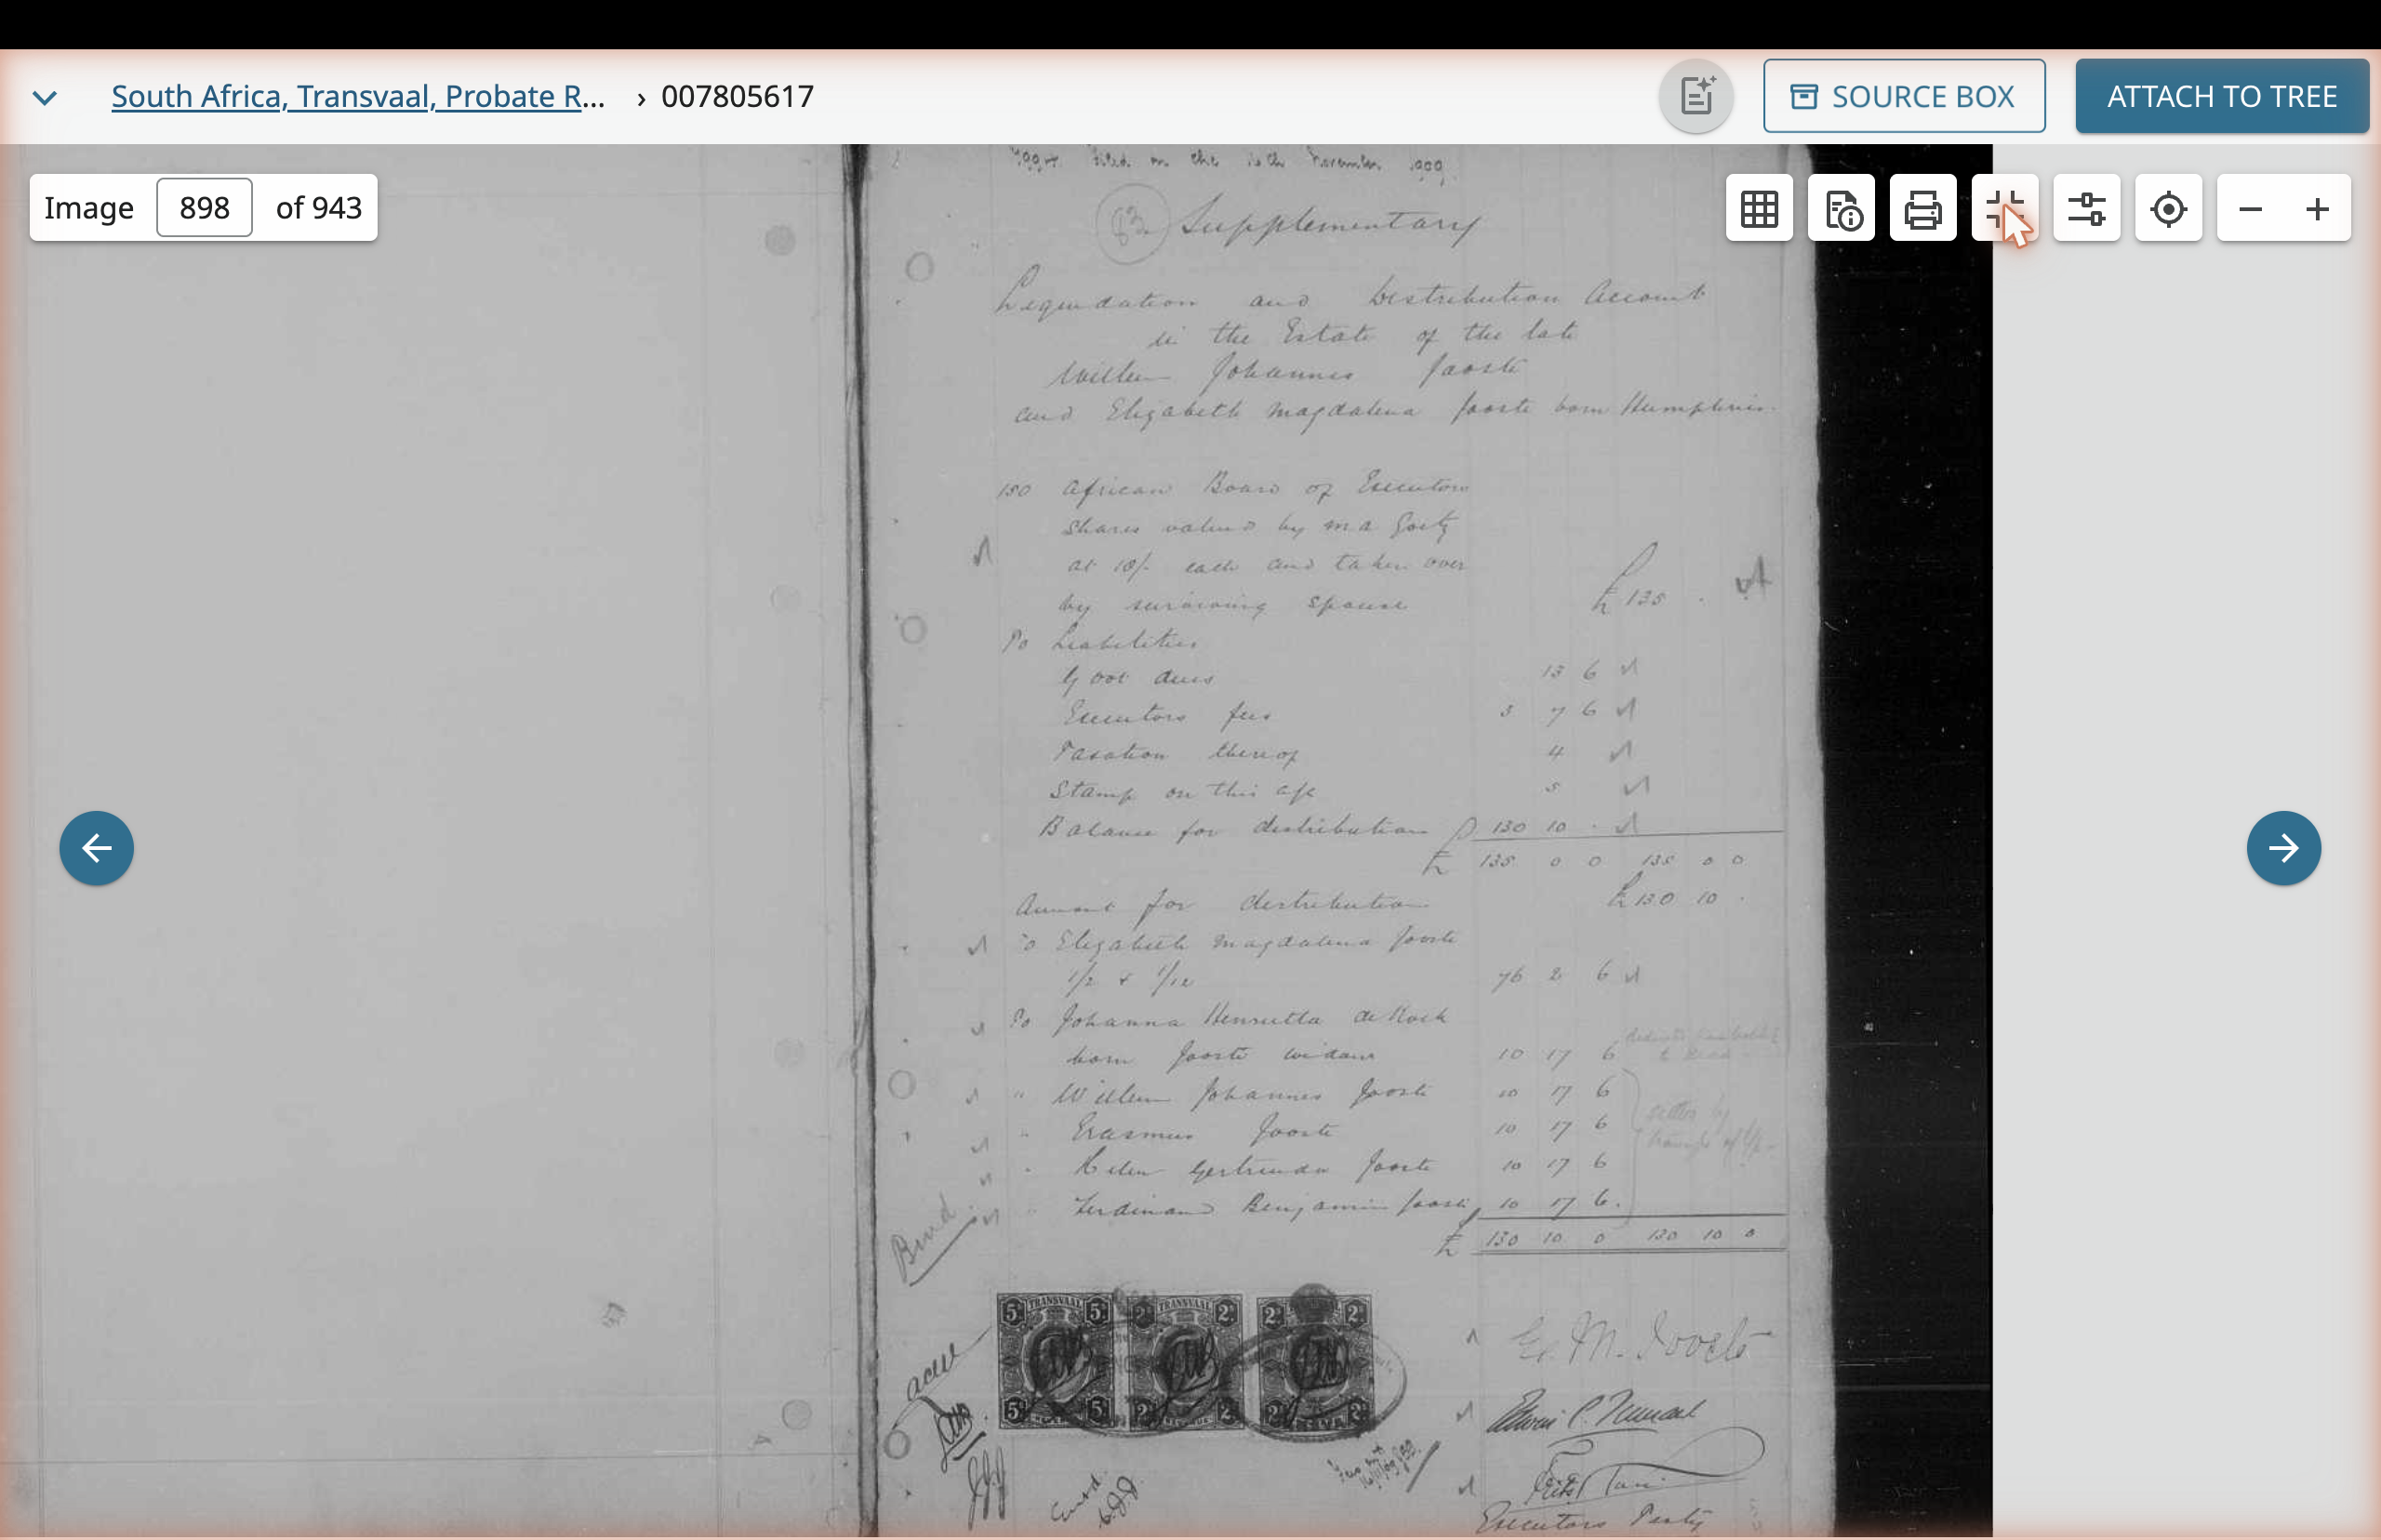 South Africa, Transvaal, Probate R... › 007805617
SOURCE BOX
ATTACH TO TREE
Image 898 of 943
Filed on the 16th November 1909
83. Supplementary
Liquidation and Distribution Account
in the Estate of the late
Willem Johannes Jooste
and Elizabeth Magdalena Jooste born Humphries.
150 African Board of Executors
Shares valued by
at 18/- each and taken over
by surviving spouse £ 135 .
To Liabilities
Govt dues 13 6
Executors fees 3 7 6
Taxation thereof 4
Stamp on this a/c 5
Balance for distribution 130 10 .
£ 135 0 0 135 0 0
Amount for distribution £ 130 10 .
To Elizabeth Magdalena Jooste
1/2 & 1/12 76 2 6
To Johanna Henrietta de Kock
born Jooste widow 10 17 6
" Willem Johannes Jooste 10 17 6
" Erasmus Jooste 10 17 6
" Helen Gertruida Jooste 10 17 6
" Ferdinand Benjamin Jooste 10 17 6.
£ 130 10 0 130 10 0
5s TRANSVAAL 5s 2s TRANSVAAL 2s 2s 2s
5s 5s 2s 2s 2s 2s
E. M. Jooste
Executors Testy